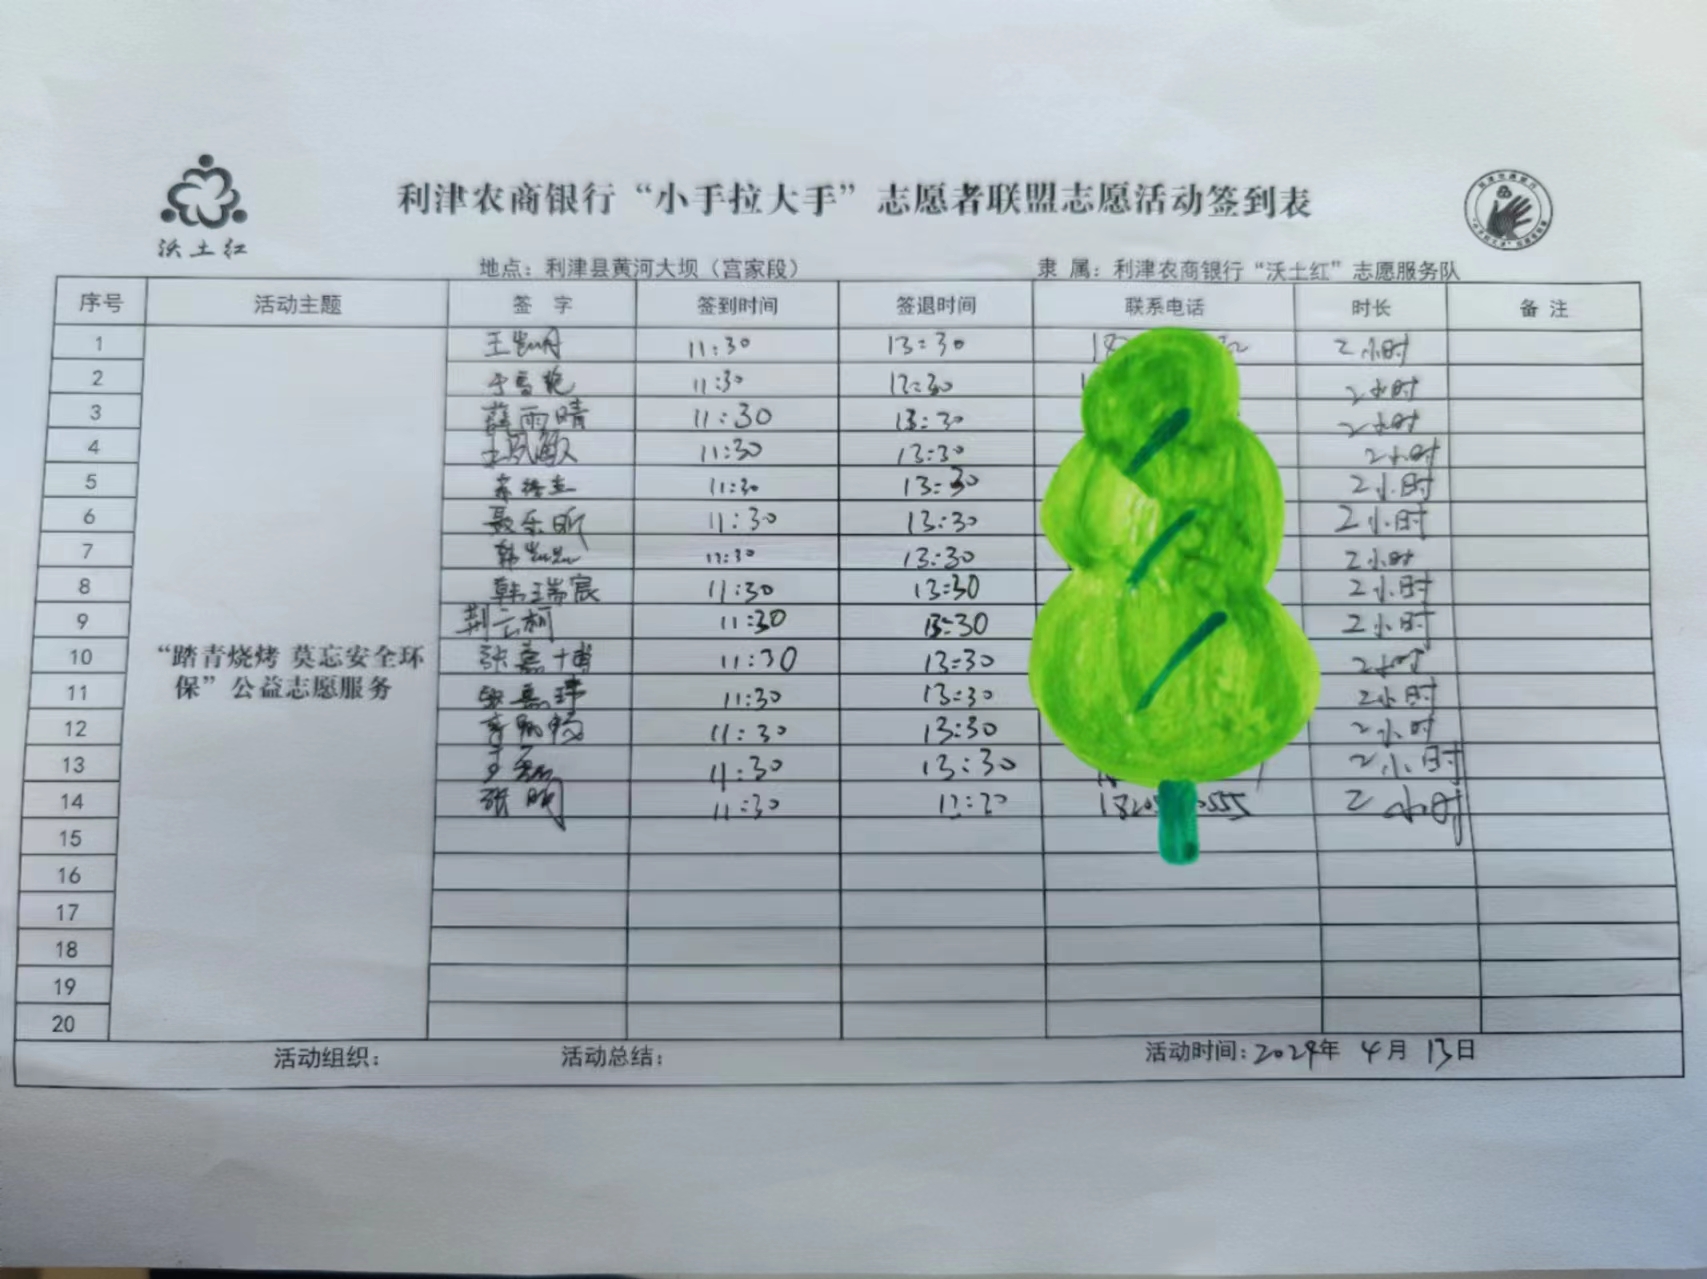 利津农商银行“小手拉大手”志愿者联盟志愿活动签到表
沃土红
地点：利津县黄河大坝（宫家段） 隶 属：利津农商银行“沃土红”志愿服务队
序号 活动主题 签 字 签到时间 签退时间 联系电话 时长 备 注
1 11:30 13:30 2小时
2 11:30 13:30 2小时
3 薛雨晴 11:30 13:30 2小时
4 11:30 13:30 2小时
5 11:30 13:30 2小时
6 聂乐昕 11:30 13:30 2小时
7 11:30 13:30 2小时
8 韩瑞宸 11:30 13:30 2小时
9 荆云柯 11:30 13:30 2小时
10 张嘉博 11:30 13:30 2小时
“踏青烧烤 莫忘安全环
保”公益志愿服务
11 11:30 13:30 2小时
12 11:30 13:30 2小时
13 11:30 13:30 2小时
14 张 11:30 2小时
15
16
17
18
19
20
活动组织： 活动总结： 活动时间：2024年 4月 13日